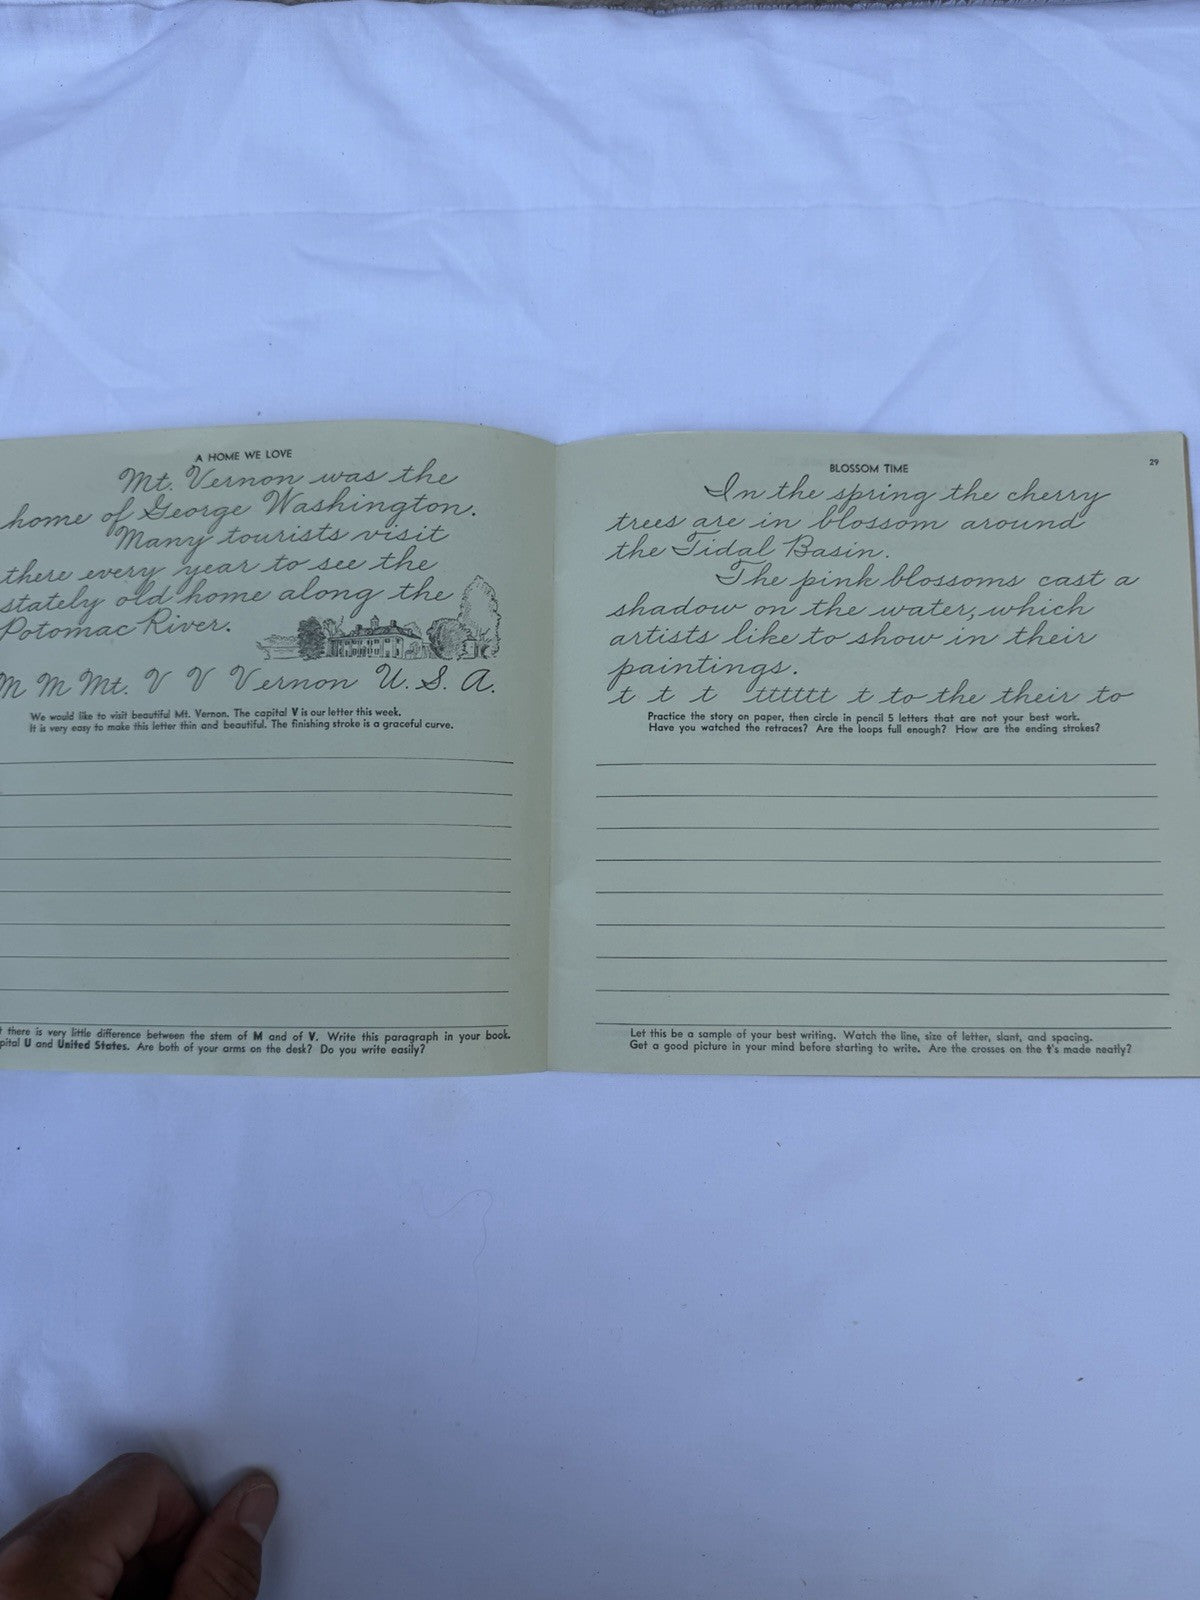 A HOME WE LOVE
Mt. Vernon was the
home of George Washington.
Many tourists visit
there every year to see the
stately old home along the
Potomac River.
M M Mt. V V Vernon U. S. A.
We would like to visit beautiful Mt. Vernon. The capital V is our letter this week.
It is very easy to make this letter thin and beautiful. The finishing stroke is a graceful curve.
there is very little difference between the stem of M and of V. Write this paragraph in your book.
U and United States. Are both of your arms on the desk? Do you write easily?
29
BLOSSOM TIME
In the spring the cherry
trees are in blossom around
the Tidal Basin.
The pink blossoms cast a
shadow on the water, which
artists like to show in their
paintings.
t t t tttttt t to the their to
Practice the story on paper, then circle in pencil 5 letters that are not your best work.
Have you watched the retraces? Are the loops full enough? How are the ending strokes?
Let this be a sample of your best writing. Watch the line, size of letter, slant, and spacing.
Get a good picture in your mind before starting to write. Are the crosses on the t's made neatly?